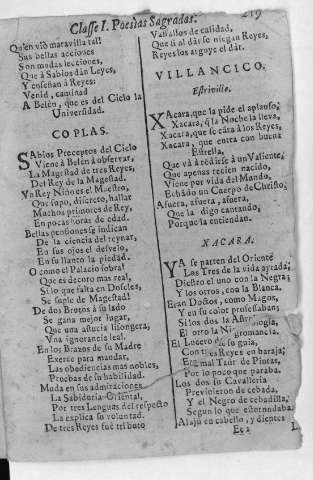 Classe I. Poesias Sagradas.
219
Quien viò maravilla tal!
Sus bellas acciones
Son mudas lecciones,
Que à Sabios dàn Leyes,
Y enseñan à Reyes:
Venid, cantad
A Belèn, que es del Cielo la
Universidad.
COPLAS.
SAbios Preceptos del Cielo
Viene à Belèn à observar,
La Magestad de tres Reyes,
Del Rey de la Magestad.
Un Rey Niño es el Maestro,
Que supo, discreto, hallar
Muchos primores de Rey,
En pocas horas de edad.
Bellas pensiones se indican
De la ciencia del reynar,
En sus ojos el desvelo,
En su llanto la piedad.
O como el Palacio sobra!
Que es decoro mas real,
Si lo que falta en Doseles,
Se suple de Magestad!
De dos Brutos à su lado
Se gana mejor lugar,
Que una astucia lisongera,
Vna ignorancia leal.
En los Brazos de su Madre
Exerce para mandar,
Las obediencias mas nobles,
Pruebas de su habilidad.
Muda en sus admiraciones
La Sabiduria Oriental,
Por tres Lenguas del respecto
La explica su voluntad.
De tres Reyes fue tributo
Vassallos de calidad,
Que si al dàr se niegan Reyes,
Reyes los arguye el dàr.
VILLANCICO.
Estrivillo.
XAcara, que la pide el aplauso,
Xacara, q̃ la Noche la lleva,
Xacara, que se càra à los Reyes,
Xacara, que entra con buena
Estrella,
Que và à rēdirse à un Valiente,
Que apenas recien nacido,
Viene por vida del Mundo,
Echādo un Cuerpo de Christo,
Afuera, afuera, afuera,
Que la digo cantando,
Porque la entiendan.
XACARA.
YA se parten del Oriente
Las Tres de la vida ayrada;
Diestro el uno con la Negra,
Y los otros, con la Blanca.
Eran Doctos, como Magos,
Y en su color professaban;
Si los dos la Astrologia,
El otro la Nigromancia.
El Lucero de su guia,
Con tres Reyes en baraja;
Era mal Taur de Pintas,
Por lo poco que paraba.
Los dos su Cavalleria
Previnieron de cebada,
Y el Negro de cebadilla;
Segun lo que estornudaba.
Alajù en cabello, y dientes
Ee 2